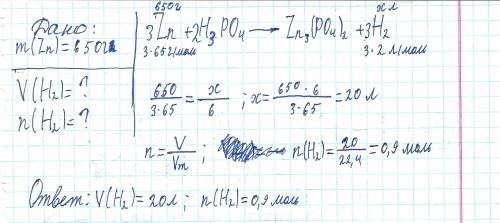 Дано:
m(Zn)=650г
V(H₂)=?
n(H₂)=?
650г
x л
3Zn + 2H₃PO₄ → Zn₃(PO₄)₂ + 3H₂
3·65г/моль
3·2 л/моль
650/3·65 = x/6 ; x = 650·6/3·65 = 20 л
n = V/Vm ; n(H₂) = 20/22,4 = 0,9 моль
Ответ: V(H₂)=20л ; n(H₂)=0,9 моль